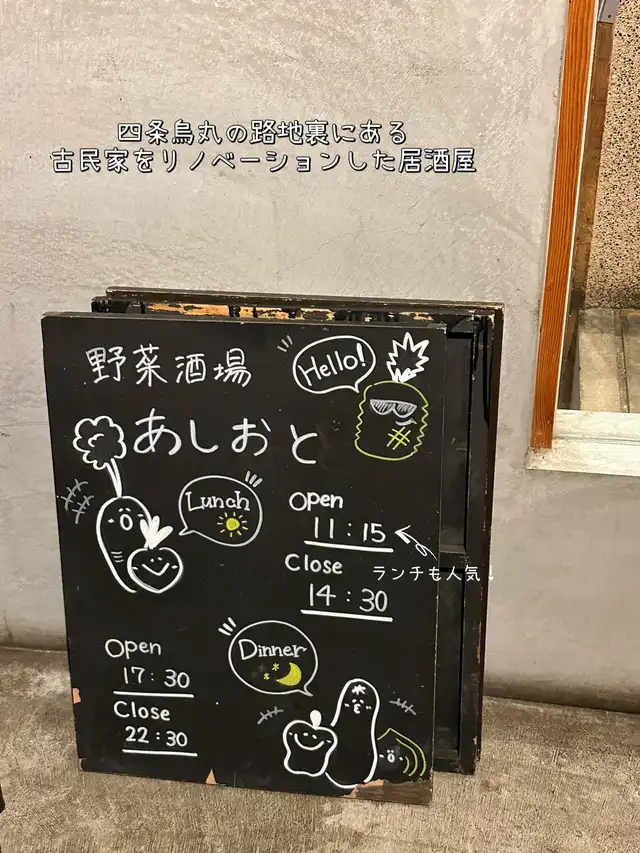 四条烏丸の路地裏にある
古民家をリノベーションした居酒屋
野菜酒場
Hello!
あしおと
Lunch
Open
11:15
Close
ランチも人気！
14:30
Dinner
Open
17:30
Close
22:30